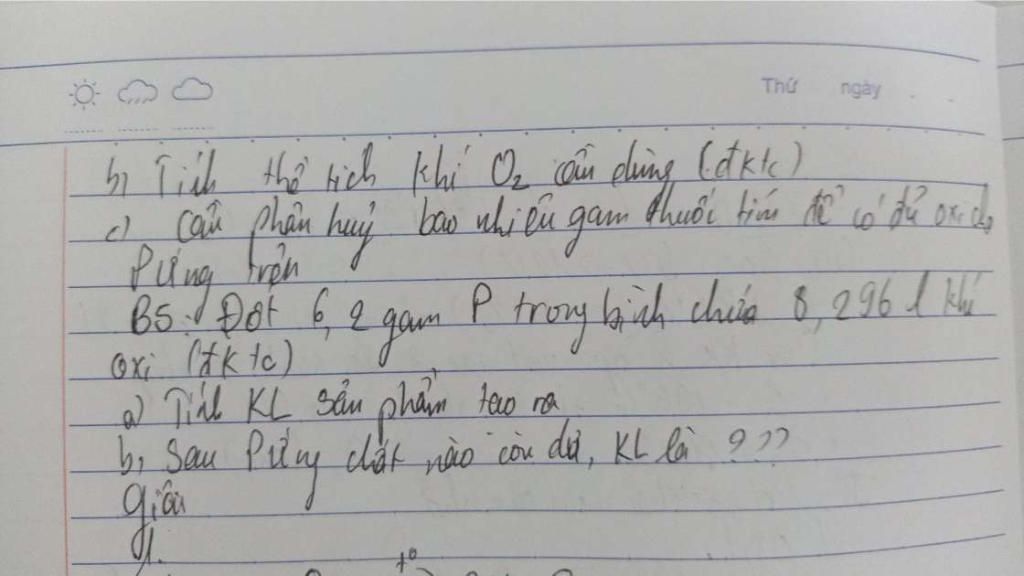 Thứ ngày
b, Tính thể tích khí O₂ cần dùng (đktc)
c) Cần phân huỷ bao nhiêu gam thuốc tím để có đủ oxi cho
Pứng trên
B5: Đốt 6,2 gam P trong bình chứa 8,296 l khí
oxi (đktc)
a) Tính KL sản phẩm tạo ra
b, Sau Pứng chất nào còn dư, KL là ???
Giải
1.
t°